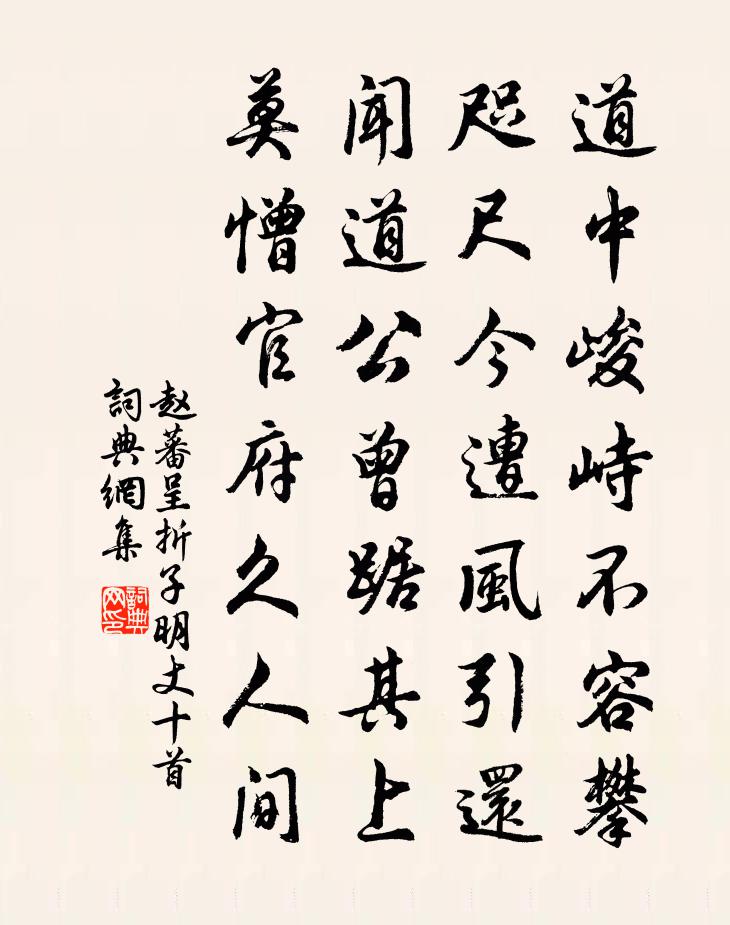 道中峻峙不容攀
咫尺今遭風引還
聞道公曾踞其上
莫憎官府久人間
赵蕃呈折子明丈十首
詞典網集
詞典网印